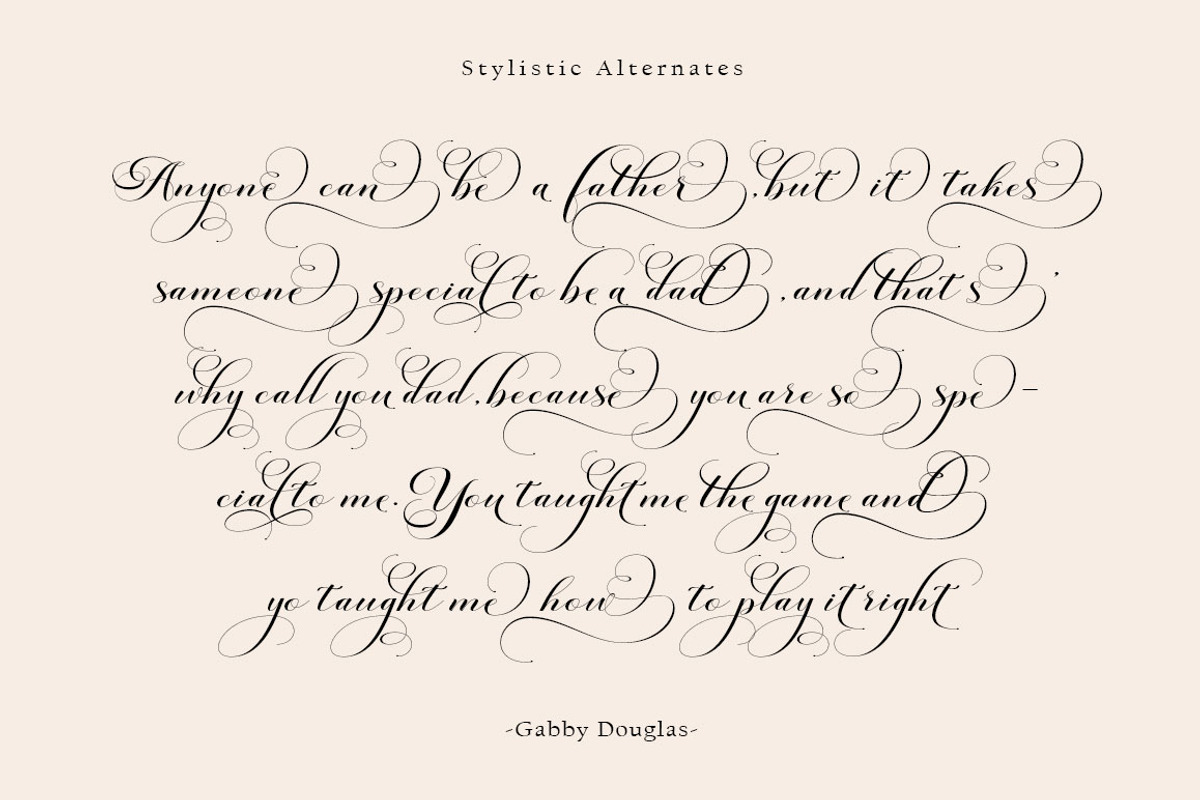 Stylistic Alternates
Anyone can be a father ,but it takes
sameone special to be a dad ,and that s '
why call you dad,because you are so spe-
cial to me. You taught me the game and
yo taught me how to play it right
-Gabby Douglas-